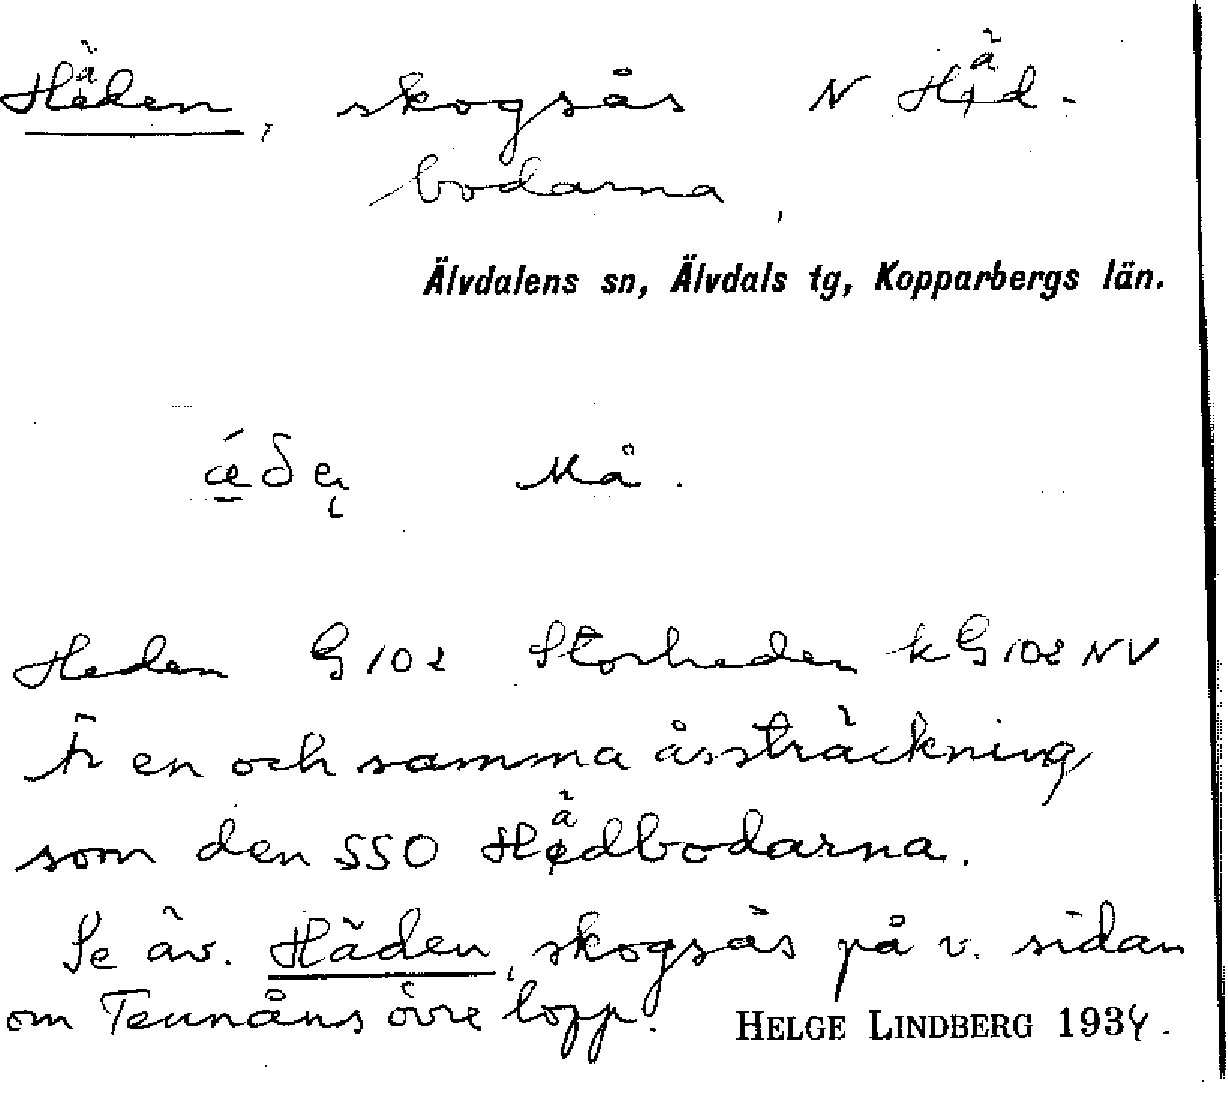 Häden, skogsås N Häd-
bodarna,
Älvdalens sn, Älvdals tg, Kopparbergs län.
Må.
Heden G 102 Storheden k G 102 NV
Är en och samma åssträckning
som den SSO Hädbodarna.
Se äv. Häden, skogsås på v. sidan
om Tennåns övre lopp. HELGE LINDBERG 1934.